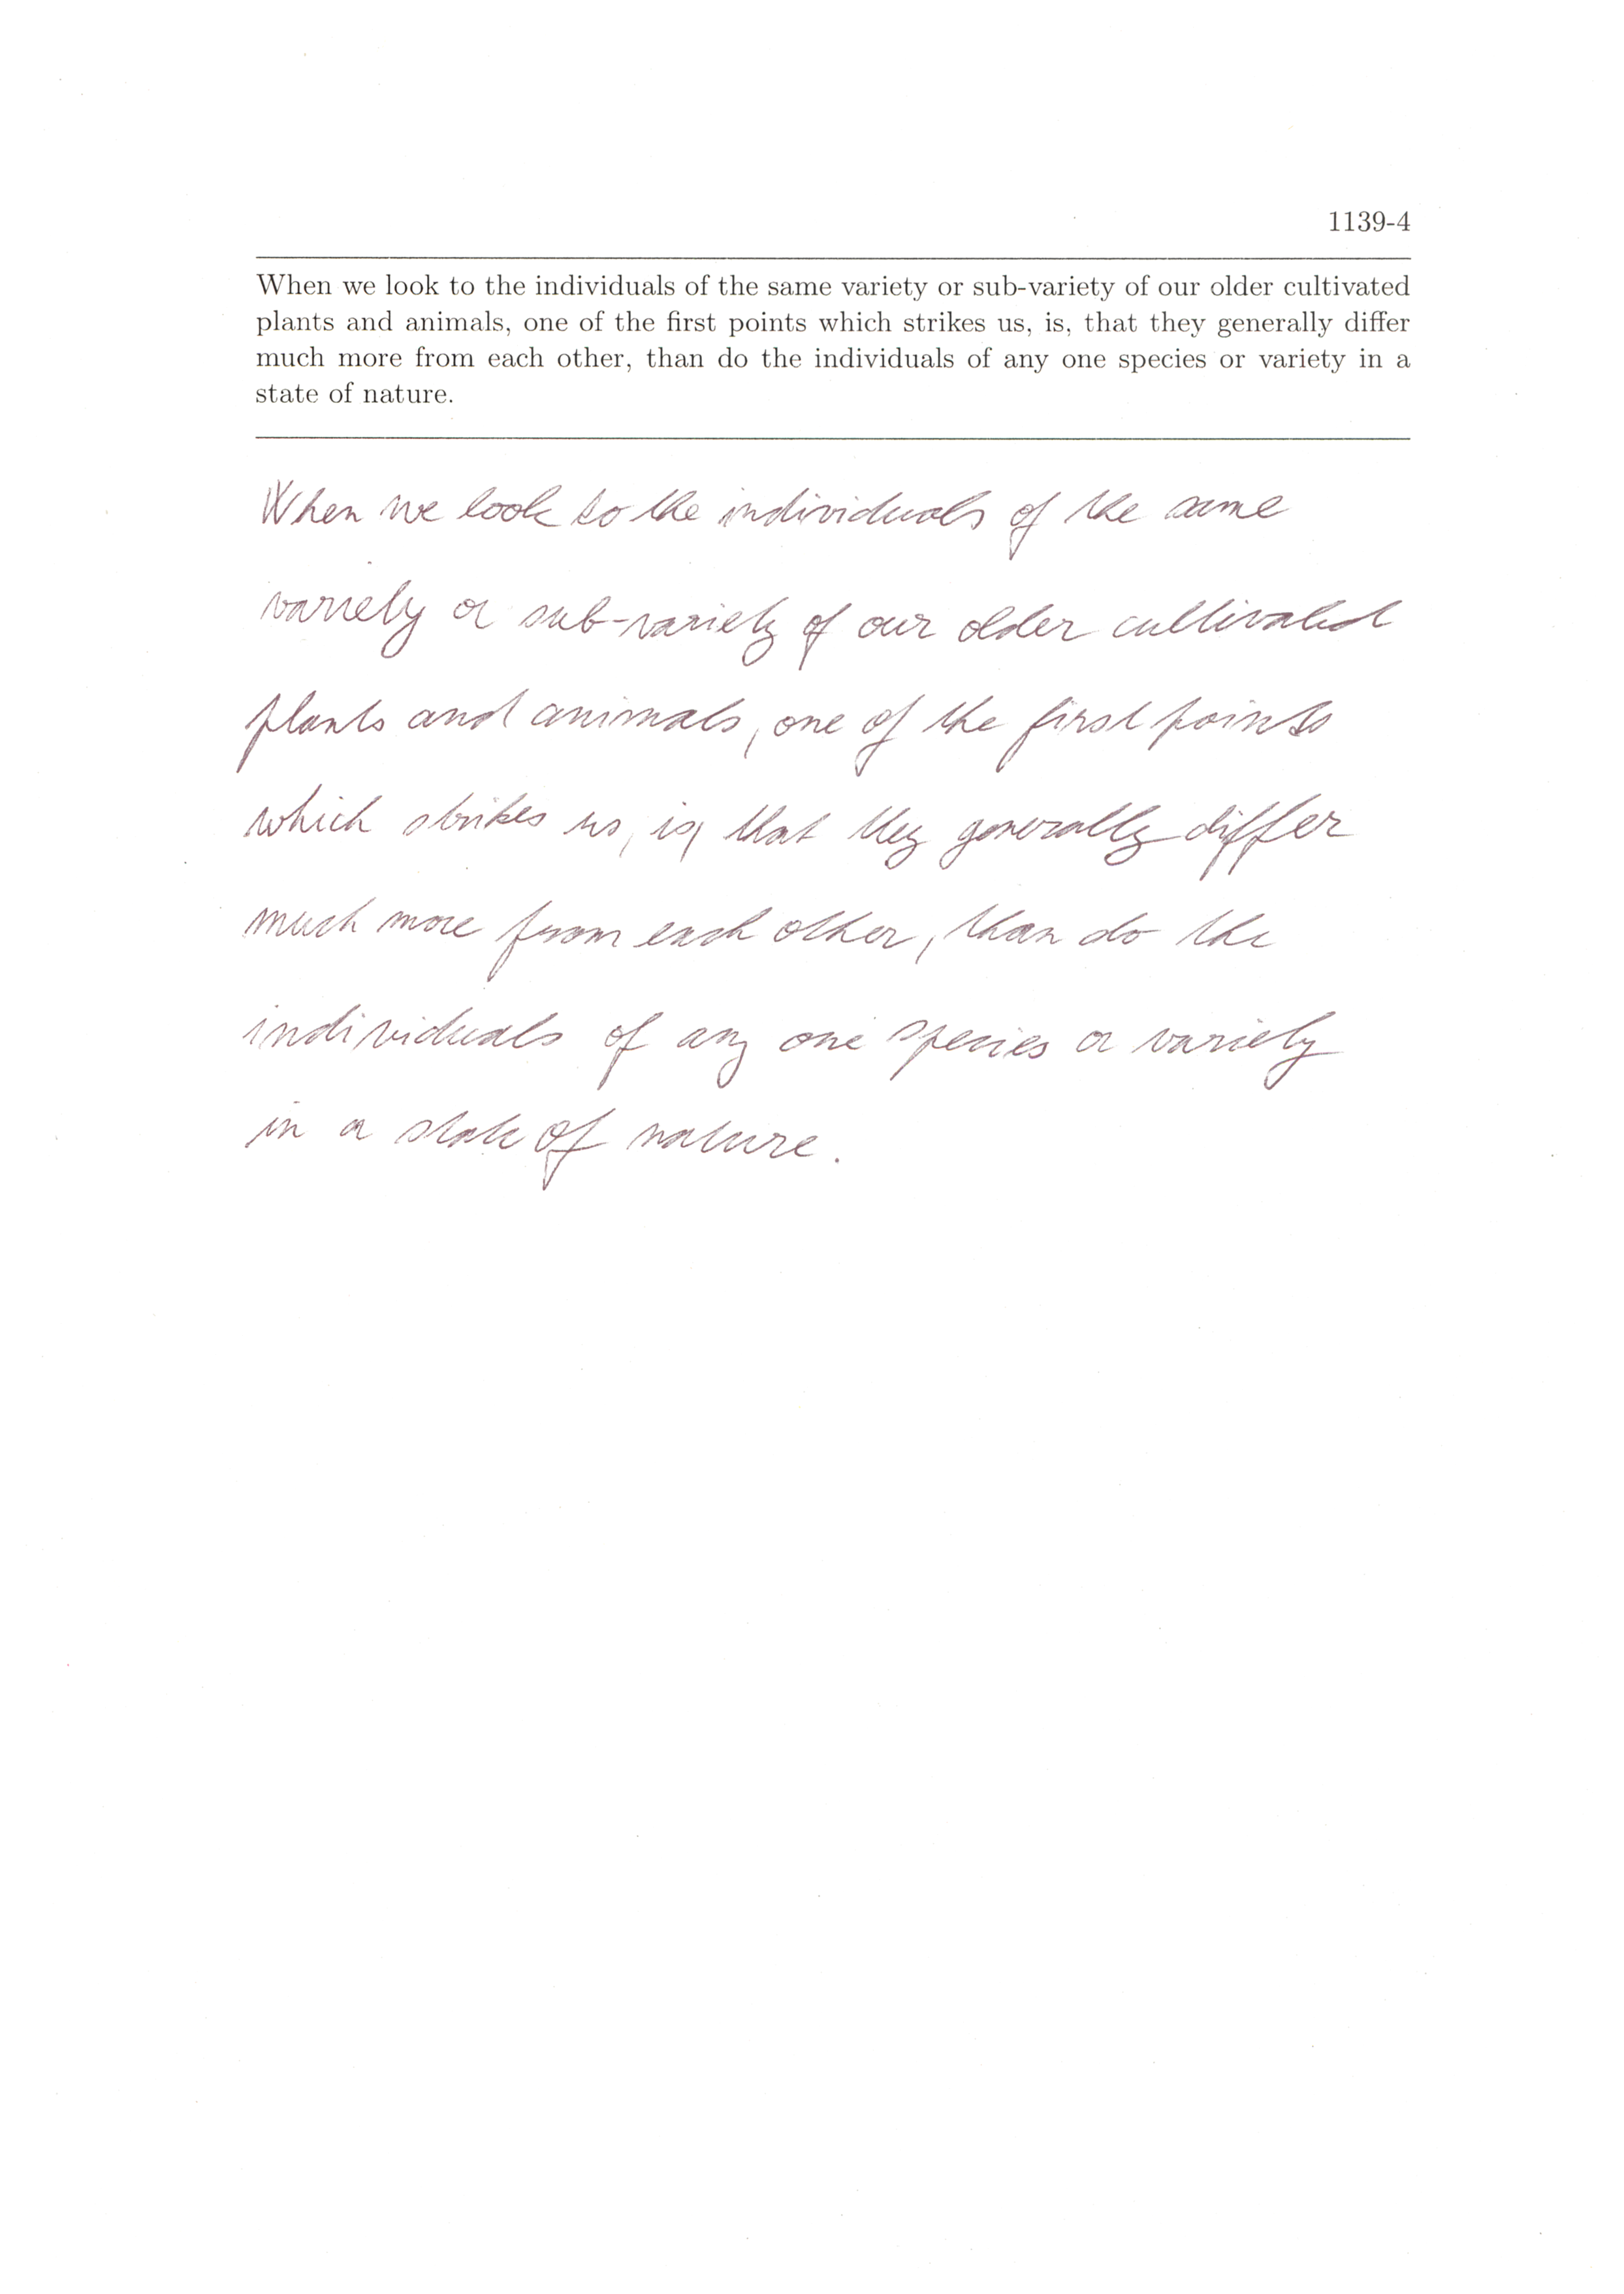 1139-4
When we look to the individuals of the same variety or sub-variety of our older cultivated
plants and animals, one of the first points which strikes us, is, that they generally differ
much more from each other, than do the individuals of any one species or variety in a
state of nature.
When we look to the individuals of the same
variety or sub-variety of our older cultivated
plants and animals, one of the first points
which strikes us, is, that they generally differ
much more from each other, than do the
individuals of any one species or variety
in a state of nature.